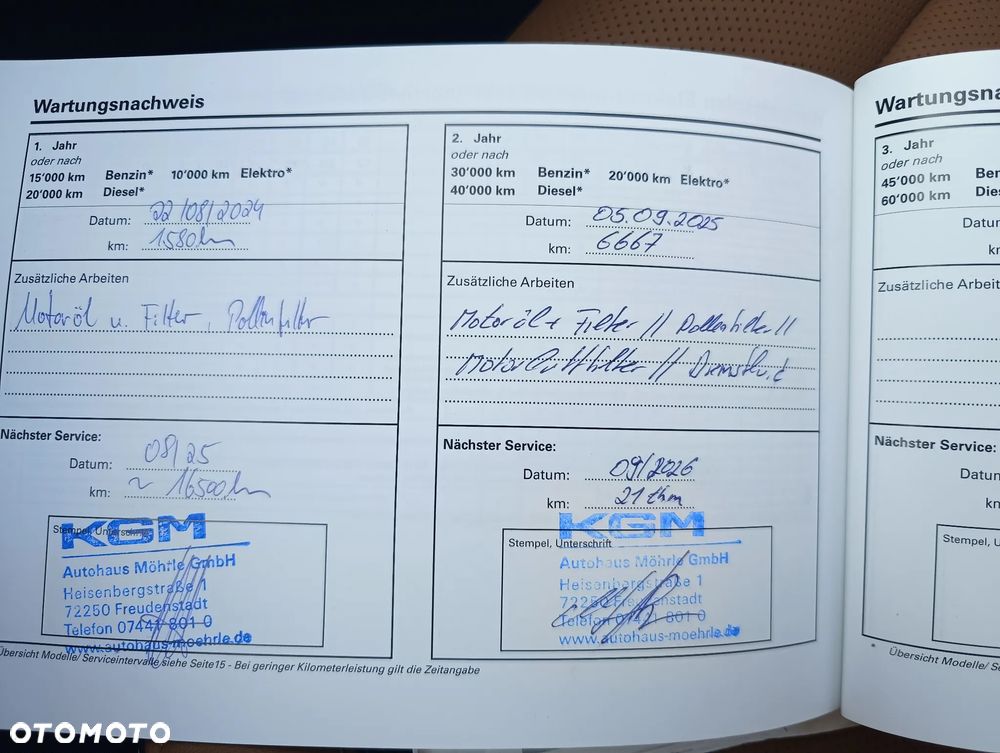 Wartungsnachweis
1. Jahr
oder nach
15'000 km Benzin* 10'000 km Elektro*
20'000 km Diesel*
Datum: 22/08/2024
km: 1580km
Zusätzliche Arbeiten
Motoröl u. Filter, Pollenfilter
Nächster Service:
Datum: 08/25
km: ~ 16500km
Stempel, Unterschrift
KGM
Autohaus Möhrle GmbH
Heisenbergstraße 1
72250 Freudenstadt
Telefon 07441 801 0
www.autohaus-moehrle.de
2. Jahr
oder nach
30'000 km Benzin* 20'000 km Elektro*
40'000 km Diesel*
Datum: 05.09.2025
km: 6667
Zusätzliche Arbeiten
Motoröl + Filter // Pollenfilter //
Motorluftfilter //
Nächster Service:
Datum: 09/2026
km: 21
KGM
Stempel, Unterschrift
Autohaus Möhrle GmbH
Heisenbergstraße 1
72250 Freudenstadt
Telefon 07441 801 0
www.autohaus-moehrle.de
Übersicht Modelle/ Serviceintervalle siehe Seite15 - Bei geringer Kilometerleistung gilt die Zeitangabe
Wartungsna
3. Jahr
oder nach
45'000 km Ben
60'000 km Dies
Datu
k
Zusätzliche Arbeit
Nächster Service:
Datu
km
Stempel, U
* Übersicht Modelle/ Se
OTOMOTO